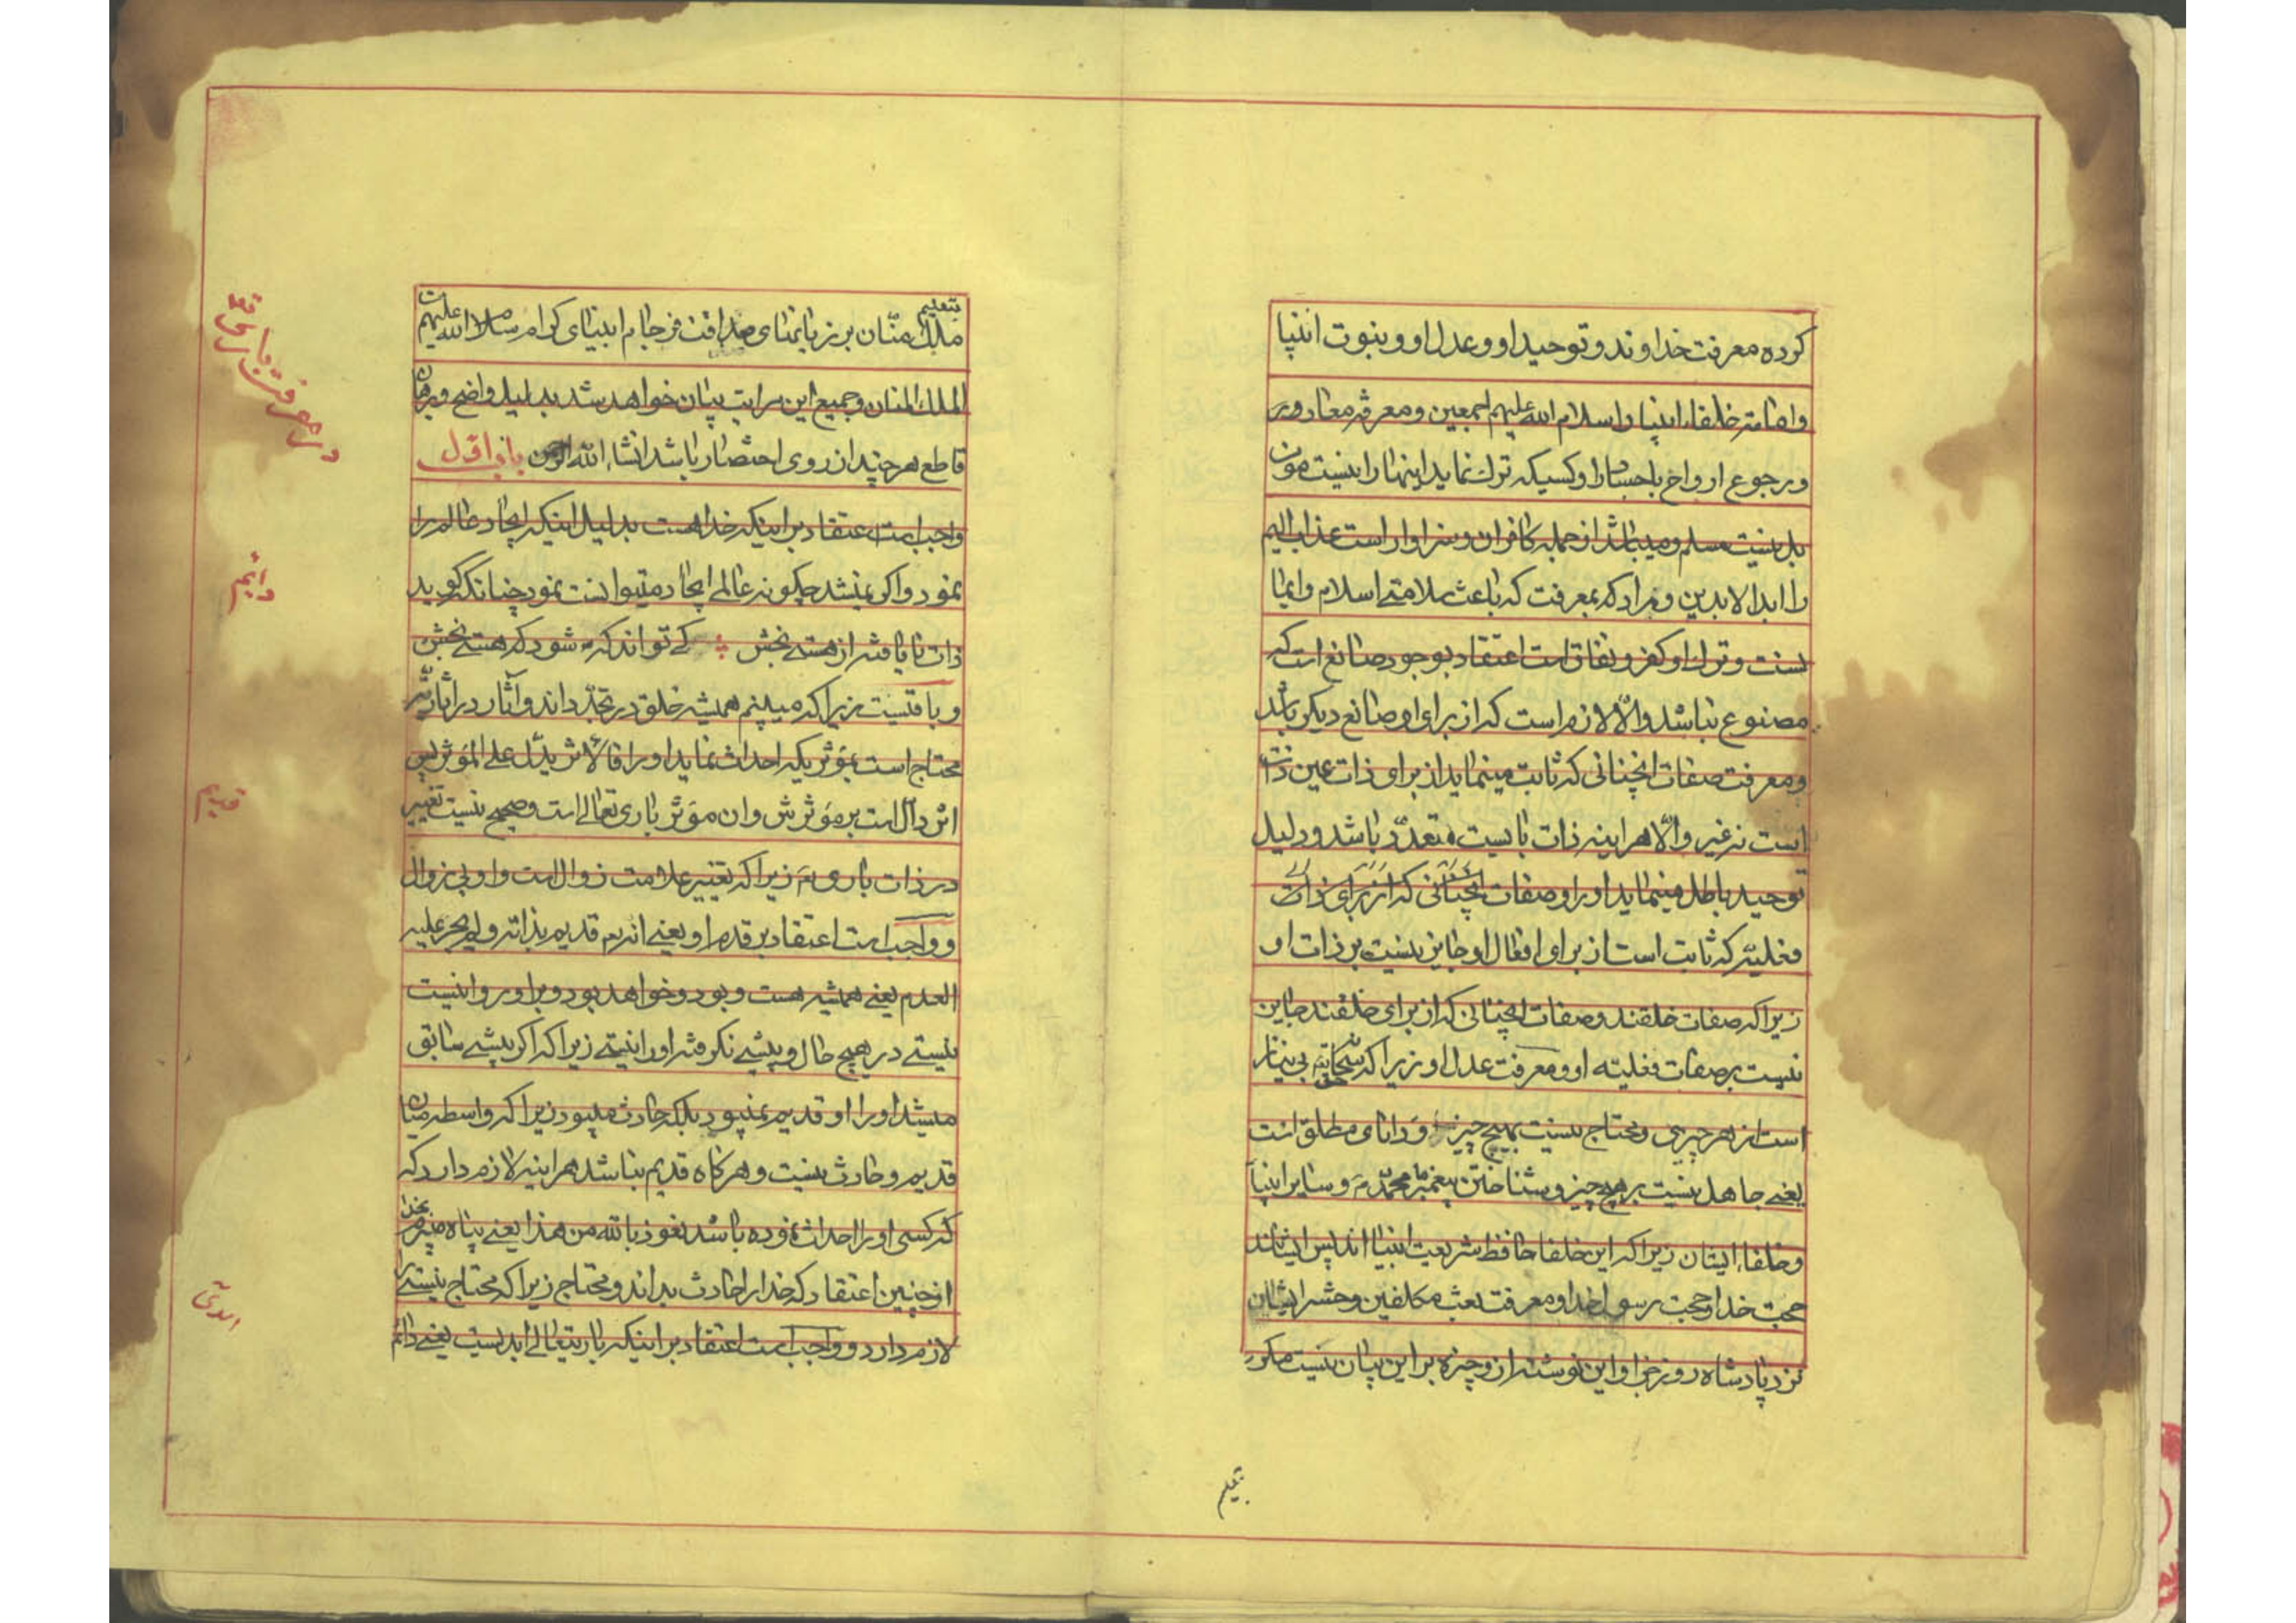 کرده معرفت خداوند و توحید او و عدل او و بنبوت انبیا
و امامة خلفاء انبیا و سلام الله علیهم اجمعین و معرفة معاد و
و رجوع ارواح باجساد و کسیکه ترک نماید اینها را نیست مومن
بل نیست مسلم و میباشد از جمله کافران و سزاوار است عذاب الیم
را ابد الابدین و مراد که بمعرفت که باعث سلامتی اسلام و ایمان
نست و ترک او کفر و نفاق است اعتقاد بوجود صانع است که
مصنوع نباشد والّا لازم است که از برای او صانع دیگر باشد
و معرفت صفات انچنانی که ثابت مینماید از برای ذات عین ذات
است نه غیر والّا هر اینه ذات بایست متعدّد باشد و دلیل
توحید باطل مینماید او را و صفات انچنانی که از برای ذات
فعلیّه که ثابت است از برای افعال او جایز نیست بر ذات او
زیرا که صفات خلقند و صفات انچنانی که از برای خلقند جایز
نیست بر صفات فعلیته او و معرفت عدل او زیرا که بی نیاز
است از هر چیزی و محتاج نیست بهیچ چیز و دانای مطلق است
یعنے جاهل نیست بر هیچ چیز و شناختن پیغمبر ما محمّد ص و سایر انبیا
و خلفاء ایشان زیرا که این خلفا حافظ شریعت انبیا اند پس ایشانند
حجت خدا و حجت رسول خدا و معرفت بعث مکلفین و حشر ایشان
نزد پادشاه روز جزا و این نوشته از وجیزه بر این بیان نیست مگر
بتعلیم
بتعلیم
ملک منّان بر زبانهای صداقت فرجام انبیای کرام صلوات الله علیهم
الملک المنان و جمیع این مراتب بیان خواهد شد بدلیل واضح و برهان
قاطع هر چند از روی اختصار باشد انشاء الله الرحمن باب اوّل
واجب است اعتقاد بر اینکه خدا هست بدلیل اینکه ایجاد عالم را
نمود و اگر نمیشد چگونه عالم ایجاد میتوانست نمود چنانکه گوید
ذات نایافته از هستے بخش کے تواند که شود که هستے بخش
و باقیست زیرا که میبینم همیشه خلق در تجدّد اند و آثار در اثار
محتاج است بمؤثریکه احداث نماید او را فالاثر یدّل علی المؤثر پس
اثر دالّ است بر مؤثرش و ان مؤثر باری تعالے است و صحیح نیست تغییر
در ذات باری زیرا که تغییر علامت زوال است و او بی زوال
و واجب است اعتقاد بر قدم او یعنے انه قدیم بذاته و لم یجر علیه
العدم یعنے همیشه هست و بود و خواهد بود و بر او روا نیست
نیستے در هیچ حال و پیشے نگرفته او را نیستے زیرا که اگر پیشے سابق
میشد او را او قدیم نمیبود بلکه حادث میبود زیرا که واسطه میان
قدیم و حادث نیست و هرگاه قدیم نباشد هر اینه لازم دارد که
که کسی او را احداث نموده باشد نعوذ بالله من هذا یعنے پناه میبرم بخدا
از چنین اعتقاد که خدا را حادث بداند و محتاج زیرا که محتاج نیستے را
لازم دارد و واجب است اعتقاد بر اینکه باریتعالے ابدیست یعنے دائم
در معرفت باری تعالی
دائم
قدیم